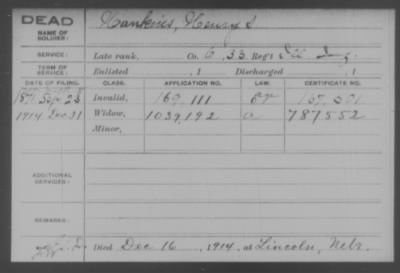 DEAD
NAME OF SOLDIER: Hankins, Henry S
SERVICE: Late rank, Co. C, 33 Reg't Ill. Inf.
TERM OF SERVICE: Enlisted , 1 Discharged , 1
DATE OF FILING. CLASS. APPLICATION NO. LAW. CERTIFICATE NO.
Sep 23 Invalid, 169,111
1914 Dec 31 Widow, 1039,192 a 787552
Minor,
ADDITIONAL SERVICES:
REMARKS:
Died Dec 16, 1914, at Lincoln, Nebr.